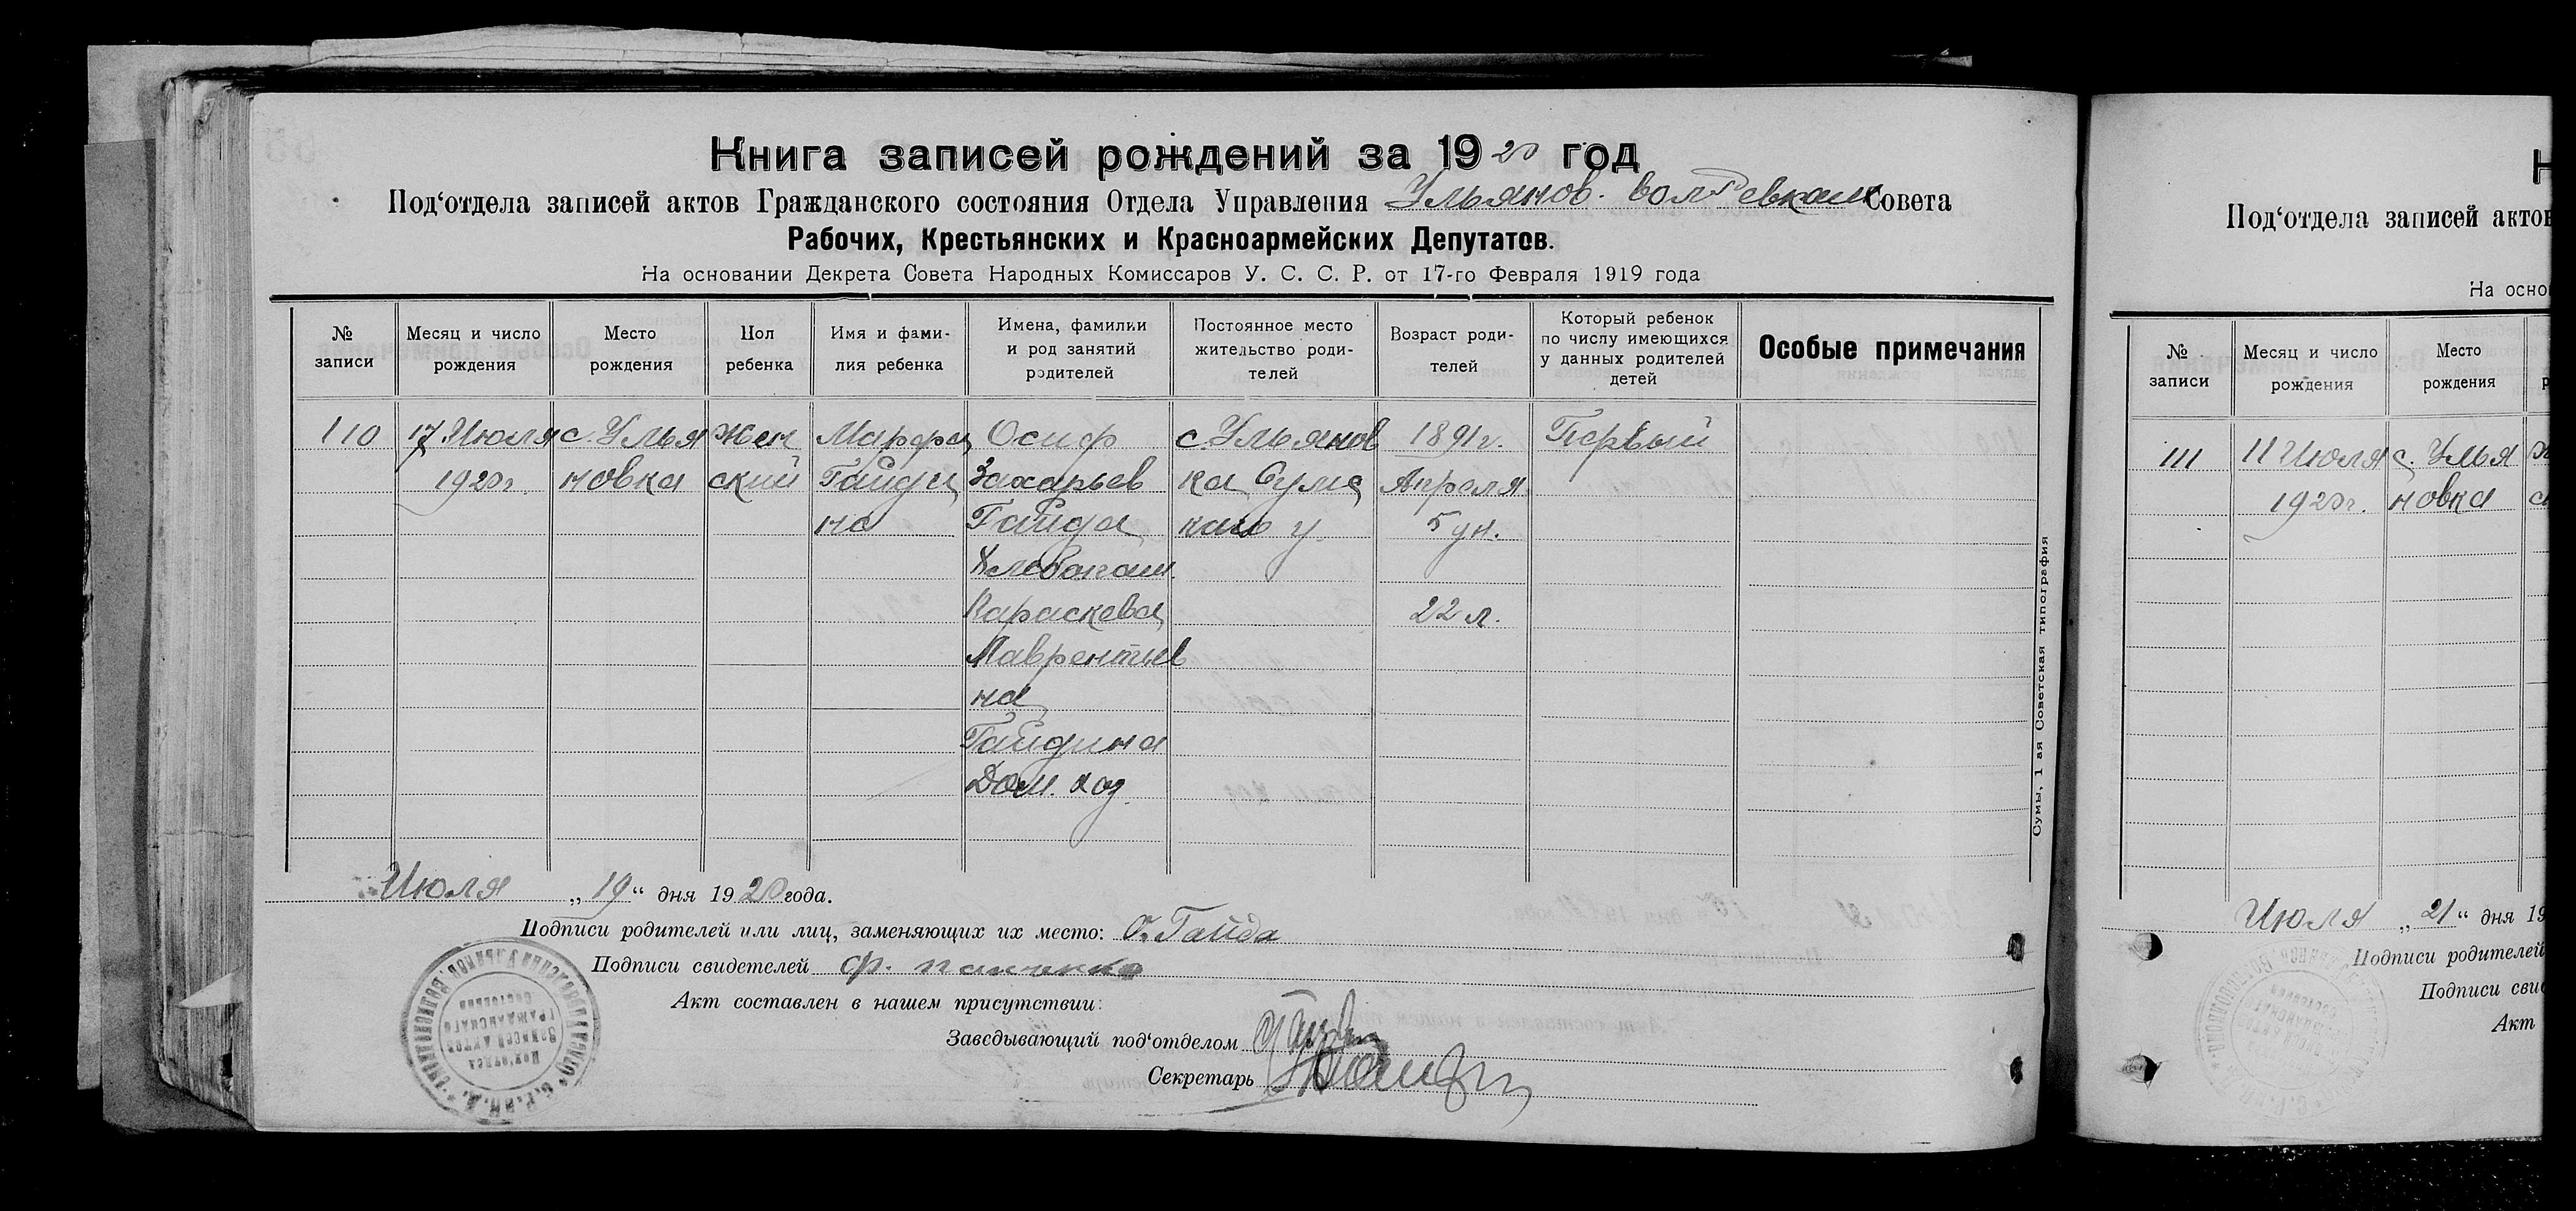 Книга записей рождений за 1920 год
Под‘отдела записей актов Гражданского состояния Отдела Управления Ульянов. волРевком Совета
Рабочих, Крестьянских и Красноармейских Депутатов.
На основании Декрета Совета Народных Комиссаров У. С. С. Р. от 17-го Февраля 1919 года
№ записи
Месяц и число рождения
Место рождения
Пол ребенка
Имя и фами-
лия ребенка
Имена, фамилии
и род занятий
родителей
Постоянное место
жительство роди-
телей
Возраст роди-
телей
Который ребенок
по числу имеющихся
у данных родителей
детей
Особые примечания
110
17 Июля
1920г.
с. Улья
новка
жен
ский
Марфа
Гайди
на
Осиф
Захарьев
Гайда
Хлебопаш.
Параскева
Лаврентьев
на
Гайдина
Дом. хоз.
с. Ульянов
ка Сумс
каго у.
1891г.
Апреля
5 дн.
22 л.
Первый
Июля „19“ дня 1920 года.
Подписи родителей или лиц, заменяющих их место: О. Гайда
Подписи свидетелей Ф.
Акт составлен в нашем присутствии:
Заведывающий под‘отделом
Секретарь
Сумы, 1 ая Советская типография
Под‘отдела записей актов
На осно
№ записи
Месяц и число рождения
Место
рождения
111
11 Июля
1920г.
с. Улья
новка
Июля „21“ дня 19
Подписи родителей
Подписи сви
Акт